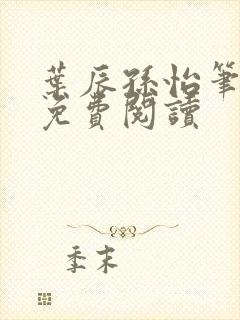 葉辰孫怡筆
免費閱讀
季末